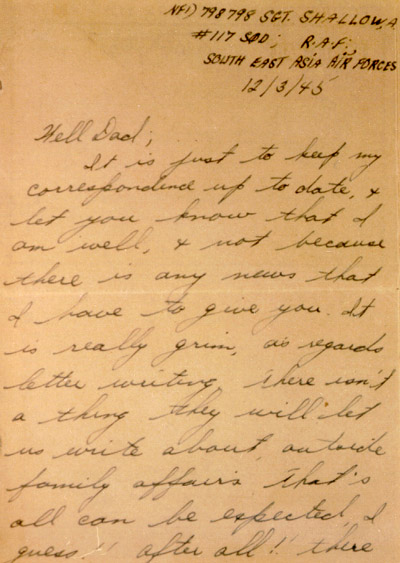 NFD) 798798 SGT. SHALLOW, A
#117 SQD; R.A.F;
SOUTH EAST ASIA AIR FORCES
12/3/45
Hell Dad;
It is just to keep my
correspondence up to date, &
let you know that I
am well, & not because
there is any news that
I have to give you. It
is really grim, as regards
letter writing, there isn't
a thing they will let
us write about, outside
family affairs that's
all can be expected, I
guess!! after all! there